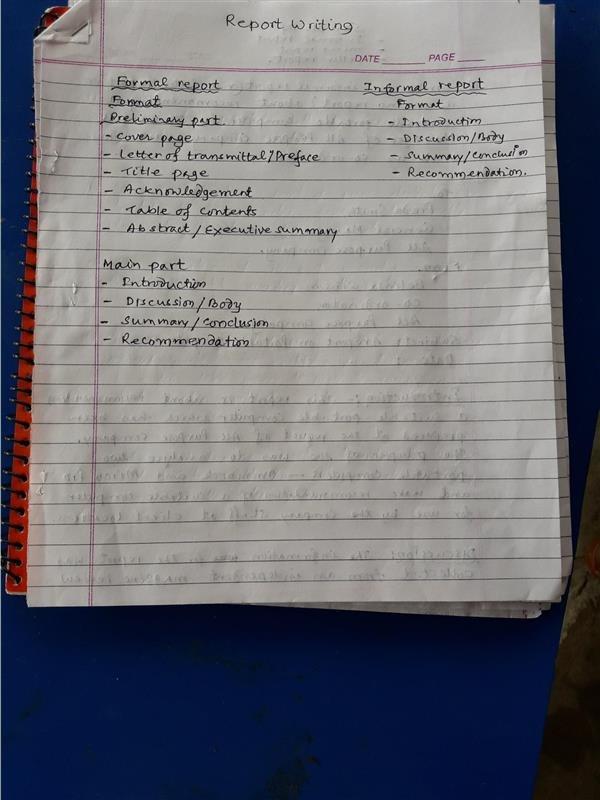 Report Writing
DATE PAGE
Formal report
Format
Preliminary part
- Cover page
- Letter of transmittal/Preface
- Title page
- Acknowledgement
- Table of contents
- Abstract/Executive summary
Main part
- Introduction
- Discussion/Body
- Summary/Conclusion
- Recommendation
Informal report
Format
- Introduction
- Discussion/Body
- Summary/Conclusion
- Recommendation.